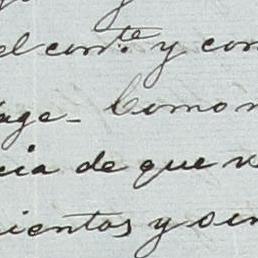 el corr.te y con
age_ Como n
cia de que n
ientos y sin